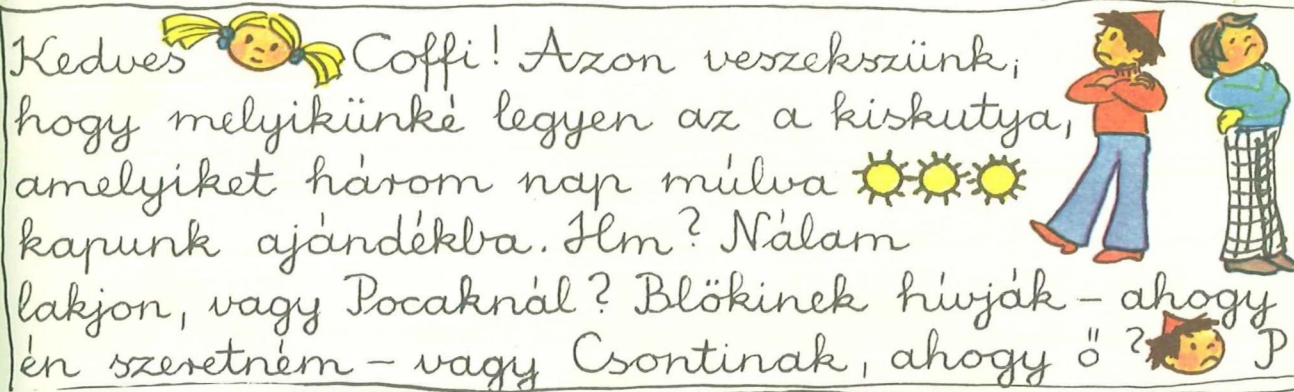 Kedves Coffi! Azon veszekszünk,
hogy melyikünké legyen az a kiskutya,
amelyiket három nap múlva
kapunk ajándékba. Hm? Nálam
lakjon, vagy Pocaknál? Blökinek hívják – ahogy
én szeretném – vagy Csontinak, ahogy ő? P